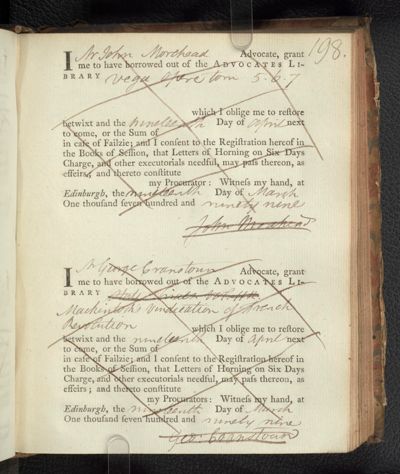 198.
I Mr John Morehead Advocate, grant
me to have borrowed out of the ADVOCATES LI-
BRARY Vega opere tom 5. 6. 7
which I oblige me to restore
betwixt and the nineteenth Day of April next
to come, or the Sum of
in case of Failzie; and I consent to the Registration hereof in
the Books of Session, that Letters of Horning on Six Days
Charge, and other executorials needful, may pass thereon, as
effeirs; and thereto constitute
my Procurator: Witness my hand, at
Edinburgh, the nineteenth Day of March
One thousand seven hundred and ninety nine
John Morehead
I Mr George Cranstoun Advocate, grant
me to have borrowed out of the ADVOCATES LI-
BRARY
Mackintosh Vindication of French
Revolution which I oblige me to restore
betwixt and the nineteenth Day of April next
to come, or the Sum of
in case of Failzie; and I consent to the Registration hereof in
the Books of Session, that Letters of Horning on Six Days
Charge, and other executorials needful, may pass thereon, as
effeirs; and thereto constitute
my Procurator: Witness my hand, at
Edinburgh, the nineteenth Day of March
One thousand seven hundred and ninety nine
Geo: Cranstoun